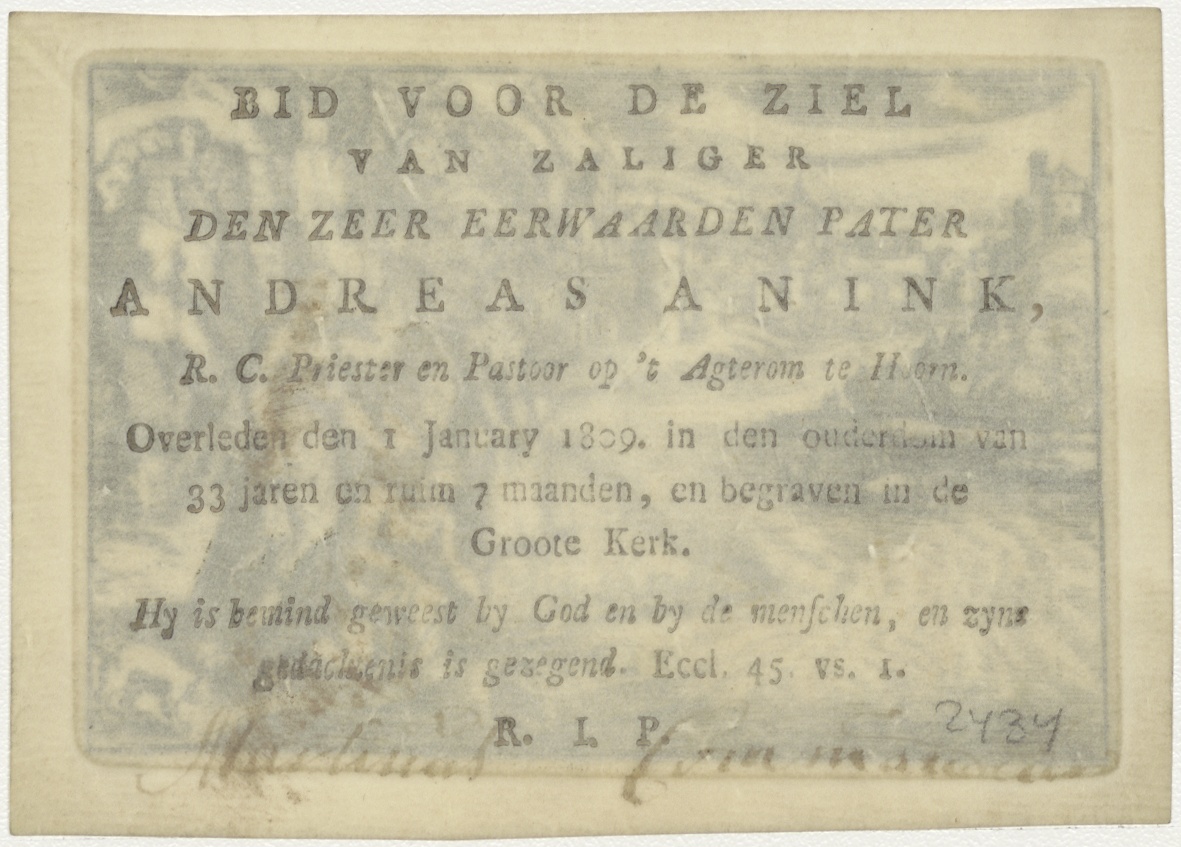 BID VOOR DE ZIEL
VAN ZALIGER
DEN ZEER EERWAARDEN PATER
ANDREAS ANINK,
R. C. Priester en Pastoor op 't Agterom te Hoorn.
Overleden den 1 January 1809. in den ouderdom van
33 jaren en ruim 7 maanden, en begraven in de
Groote Kerk.
Hy is bemind geweest by God en by de menſchen, en zyne
gedachtenis is gezegend. Eccl. 45. vs. 1.
R. I. P.
2434
Martinus